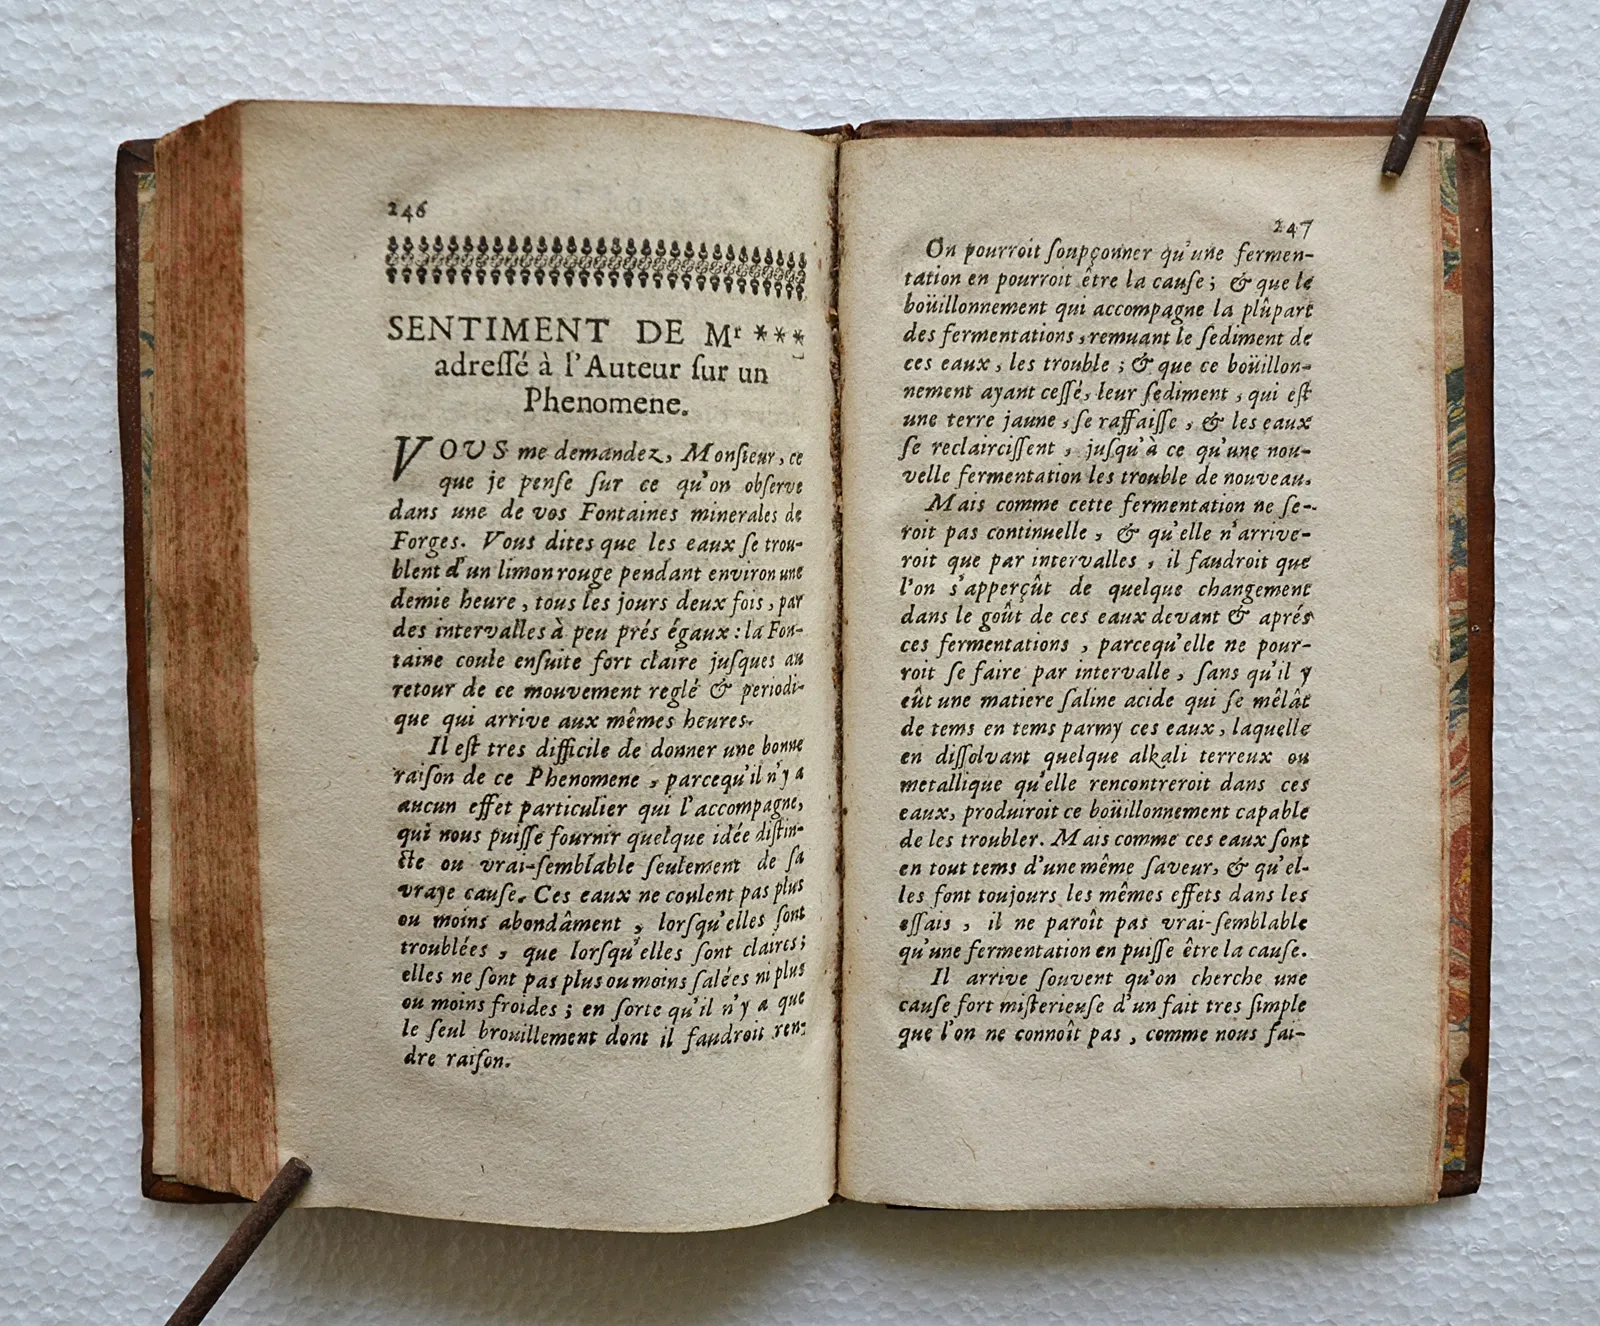 246
SENTIMENT DE Mr ***
adreſſé à l'Auteur ſur un
Phenomene.
VOUS me demandez, Monſieur, ce
que je penſe ſur ce qu'on obſerve
dans une de vos Fontaines minerales de
Forges. Vous dites que les eaux ſe trou-
blent d'un limon rouge pendant environ une
demie heure, tous les jours deux fois, par
des intervalles à peu prés égaux: la Fon-
taine coule enſuite fort claire juſques au
retour de ce mouvement reglé & periodi-
que qui arrive aux mêmes heures.
Il eſt tres difficile de donner une bonne
raiſon de ce Phenomene, parcequ'il n'y a
aucun effet particulier qui l'accompagne,
qui nous puiſſe fournir quelque idée diſtin-
cte ou vrai-ſemblable ſeulement de ſa
vraye cauſe. Ces eaux ne coulent pas plus
ou moins abondâment, lorſqu'elles ſont
troublées, que lorſqu'elles ſont claires;
elles ne ſont pas plus ou moins ſalées ni plus
ou moins froides; en ſorte qu'il n'y a que
le ſeul brouillement dont il faudroit ren-
dre raiſon.
247
On pourroit ſoupçonner qu'une fermen-
tation en pourroit être la cauſe; & que le
boüillonnement qui accompagne la plûpart
des fermentations, remuant le ſediment de
ces eaux, les trouble; & que ce boüillon-
nement ayant ceſſé, leur ſediment, qui eſt
une terre jaune, ſe raffaiſſe, & les eaux
ſe reclairciſſent, juſqu'à ce qu'une nou-
velle fermentation les trouble de nouveau.
Mais comme cette fermentation ne ſe-
roit pas continuelle, & qu'elle n'arrive-
roit que par intervalles, il faudroit que
l'on s'apperçût de quelque changement
dans le goût de ces eaux devant & aprés
ces fermentations, parcequ'elle ne pour-
roit ſe faire par intervalle, ſans qu'il y
eût une matiere ſaline acide qui ſe mêlât
de tems en tems parmy ces eaux, laquelle
en diſſolvant quelque alkali terreux ou
metallique qu'elle rencontreroit dans ces
eaux, produiroit ce boüillonnement capable
de les troubler. Mais comme ces eaux ſont
en tout tems d'une même ſaveur, & qu'el-
les font toujours les mêmes effets dans les
eſſais, il ne paroît pas vrai-ſemblable
qu'une fermentation en puiſſe être la cauſe.
Il arrive ſouvent qu'on cherche une
cauſe fort miſterieuſe d'un fait tres ſimple
que l'on ne connoît pas, comme nous fai-